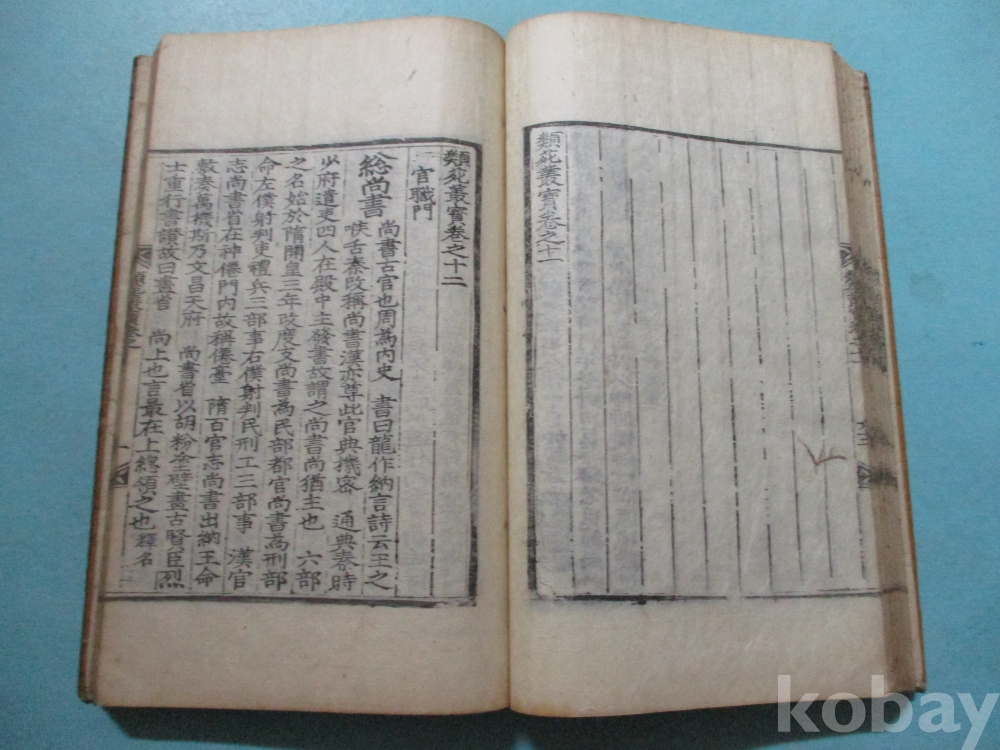 類苑叢寶卷之十一
類苑叢寶卷之十二
官職門
総尚書 尚書古官也周為内史 書曰龍作納言詩云王之
喉舌秦改稱尚書漢亦尊此官典機密 通典秦時
少府遣吏四人在殿中主發書故謂之尚書尚猶主也 六部
之名始於隋開皇三年改度支尚書為民部都官尚書為刑部
命左僕射判吏禮兵三部事右僕射判民刑工三部事 漢官
志尚書省在神僊門内故稱僊臺 隋百官志尚書出納王命
敷奏萬機斯乃文昌天府 尚書省以胡粉塗壁畫古賢臣烈
士重行書讃故曰畫省 尚上也言最在上総領之也釋名
kobay